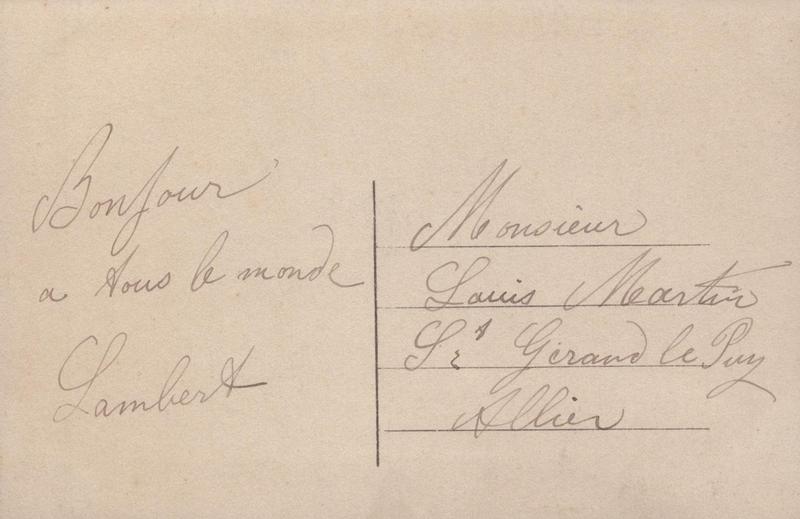 Bonjour
a tous le monde
Lambert
Monsieur
Louis Martin
St Gérand le Puy
Allier